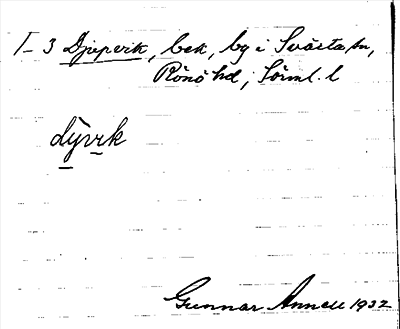 I- 3 Djuperk, bek, by i Svärta sn,
Rönö hd, Sörml. l
dyvrk
Gunnar Annell 1932